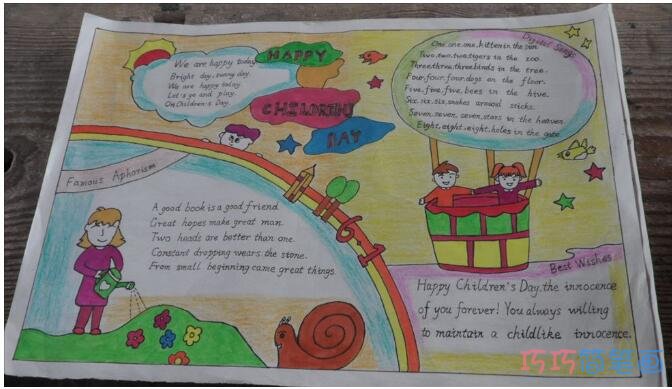 We are happy today
Bright day, sunny day.
We are happy today
Let's go and play.
On Children's Day.
HAPPY
CHILDREN'S
DAY
Digital Song:
One.one.one,kitten in the sun
Two.two.two,tigers in the zoo.
Three,three,three,birds in the tree.
Four,four,four,dogs on the floor.
Five.five.five,bees in the hive.
Six.six.six,snakes around sticks.
Seven.seven.seven,stars in the heaven
Eight,eight,eight,holes in the gate.
Famous Aphorism
A good book is a good friend
Great hopes make great man.
Two heads are better than one.
Constant dropping wears the stone.
From small beginning came great things.
6.1
Best Wishes
Happy Children's Day,the innocence
of you forever! You always willing
to maintain a childlike innocence.
巧巧简笔画